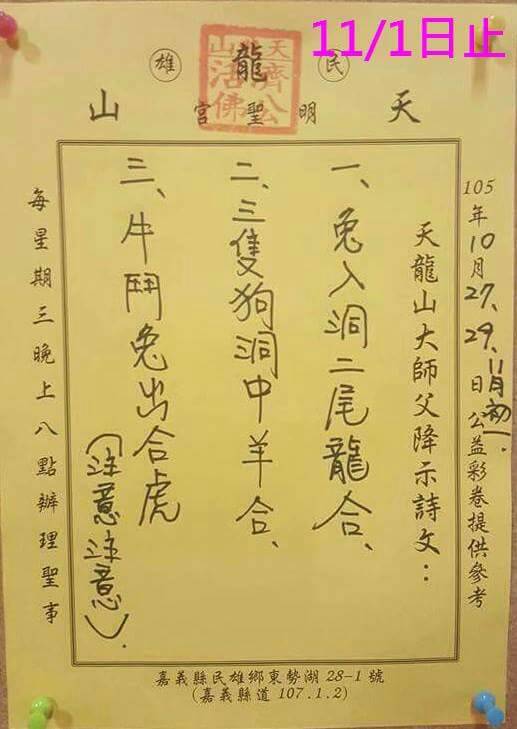 11/1日止
民雄
天龍山
明聖宮
天龍山
濟公
活佛
105年10月27、29、11月初一.日公益彩卷提供參考
天龍山大師父降示詩文：
一、兔入洞二尾龍合、
二、三隻狗洞中羊合、
三、牛鬥兔出合虎
(注意注意).
每星期三晚上八點辦理聖事
嘉義縣民雄鄉東勢湖 28-1 號
(嘉義縣道 107.1.2)